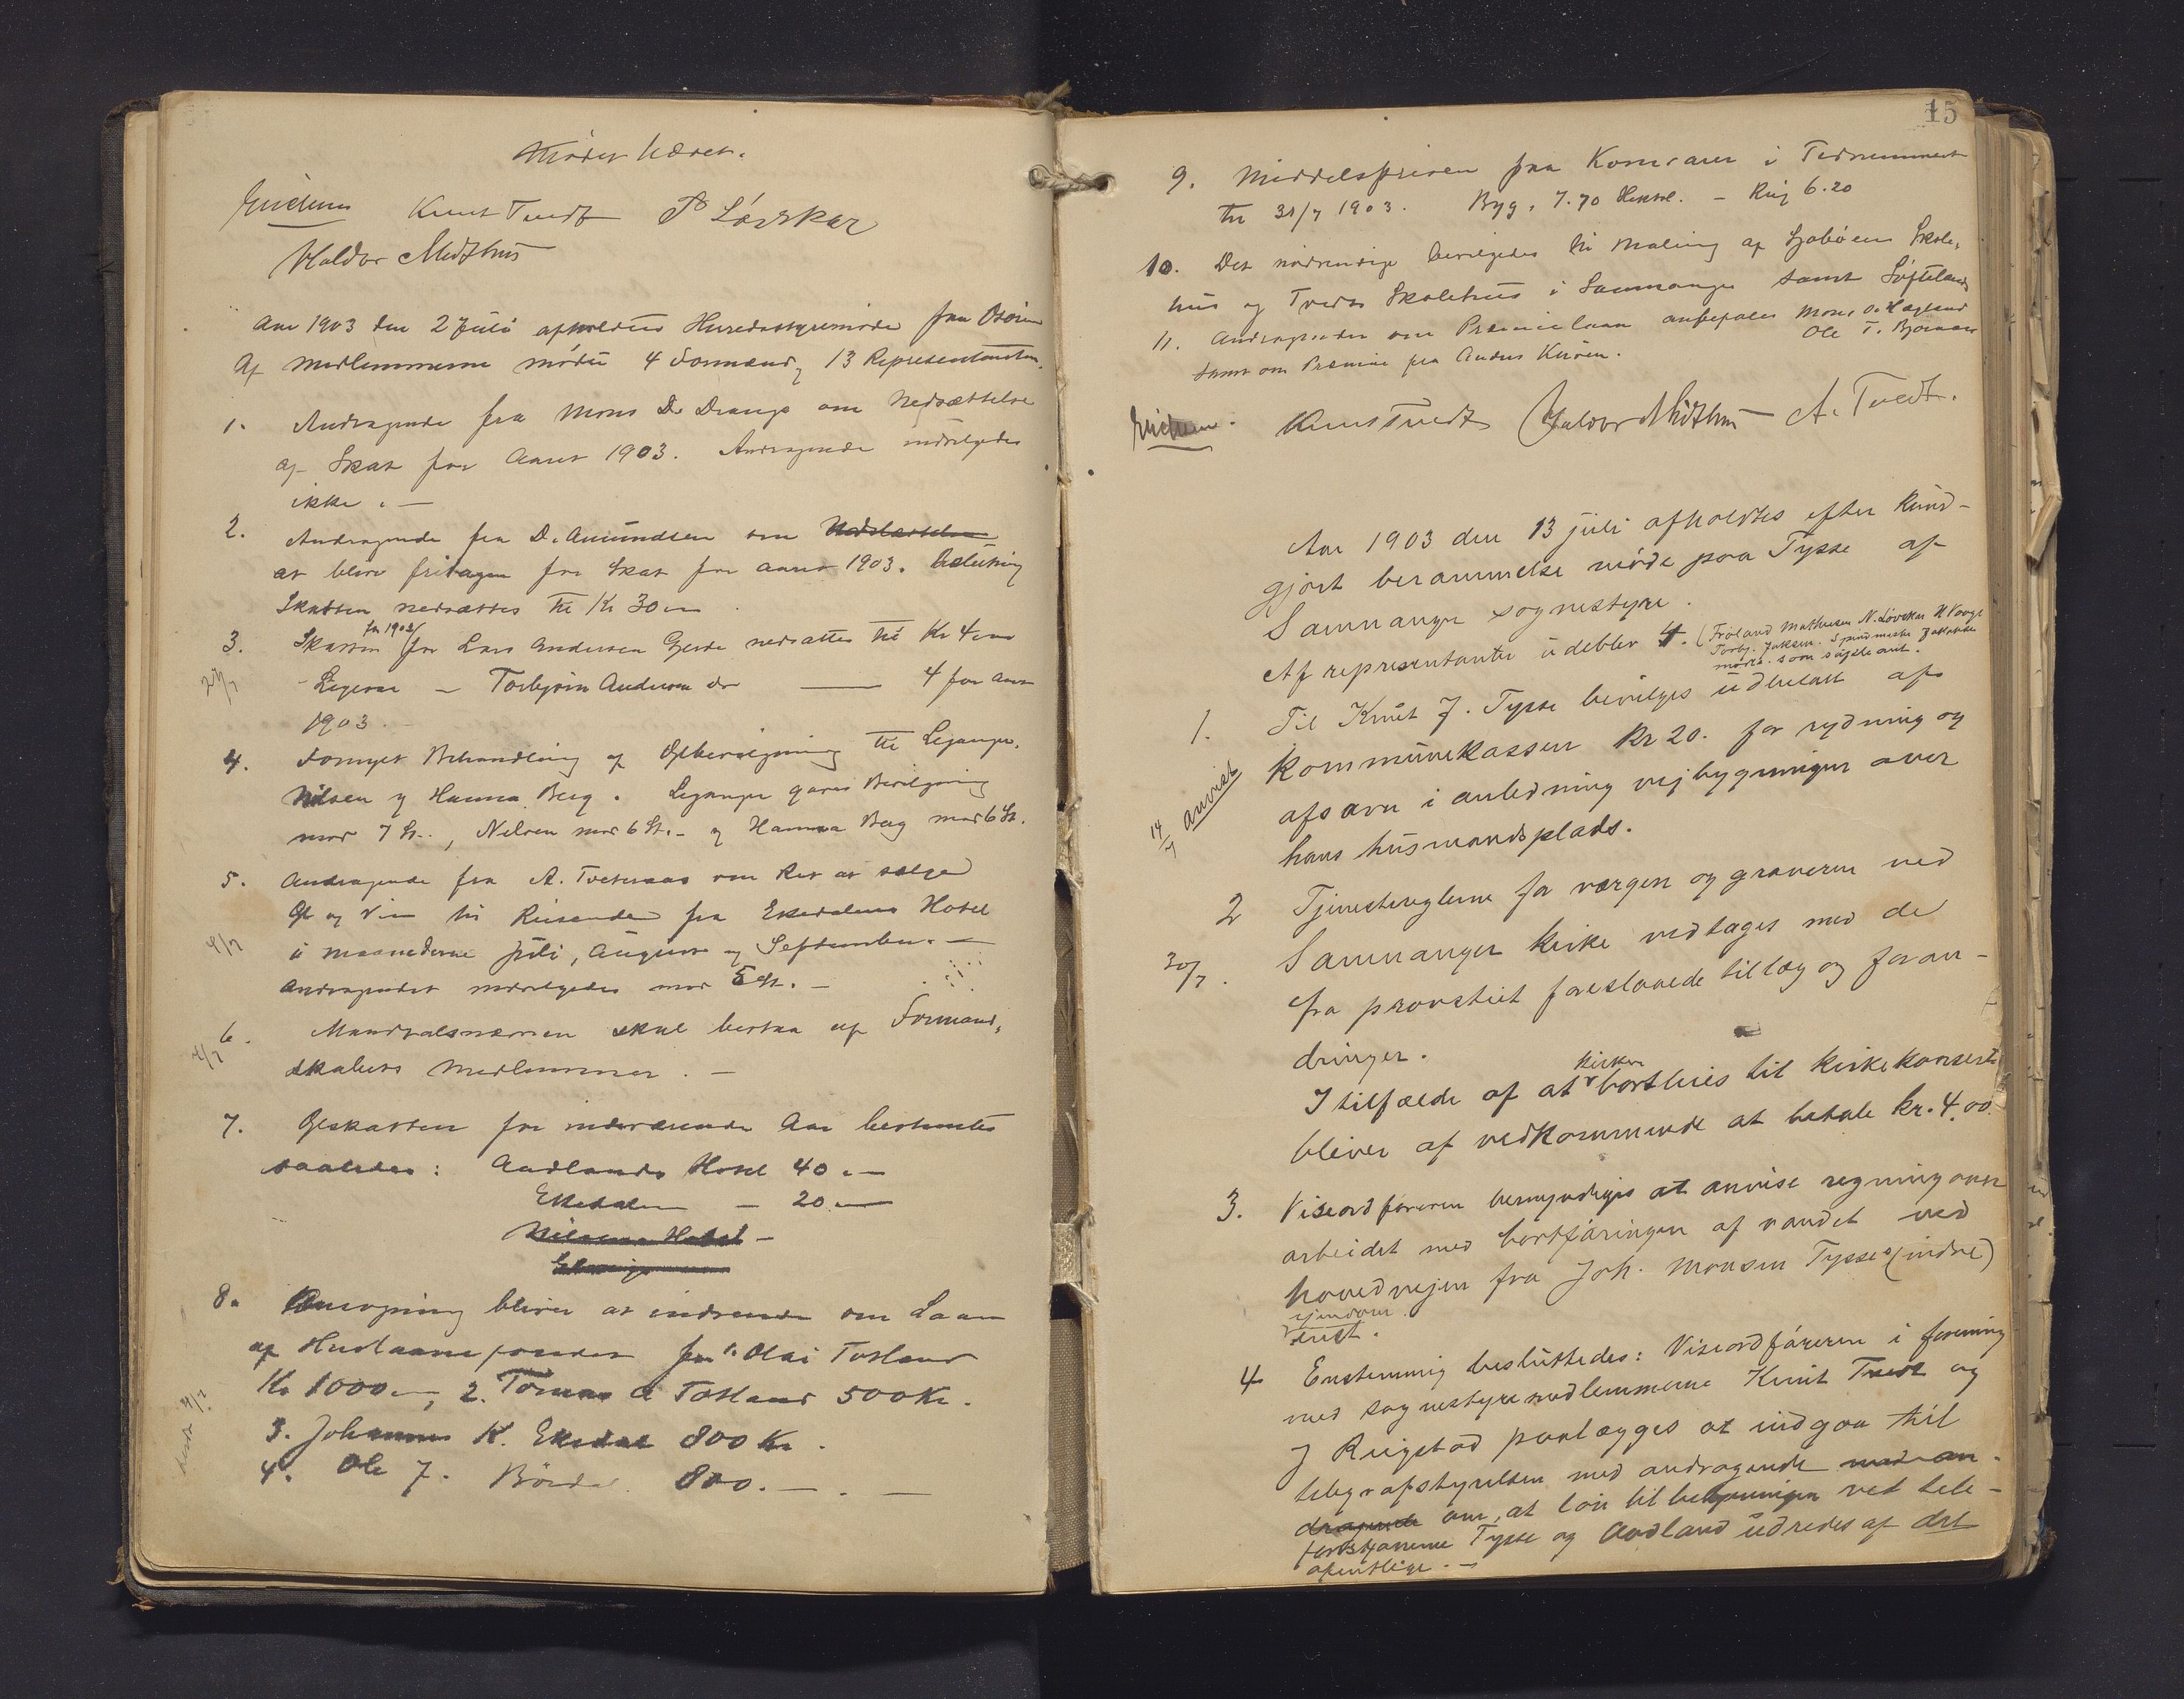 Mödet hævet.
Knut Tvedt
Haldor Midthus
Aar 1903 den 2 Juli afholdtes Herredsstyremöde paa Osören
Af Medlemmerne mødte 4 Formænd, 13 Repræsentanter.
1. Andragende fra Mons D. Drange om Nedsættelse
af Skat for Aaret 1903. Andragende indvilgedes
ikke. —
2. Andragende fra D. Amundsen om Nedsættelse
at blive fritagen for Skat for Aaret 1903. Beslutning
Skatten nedsættes til Kr 30
3. Skatten for 1903 for Lars Andersen Gjerde nedsattes til Kr 4
Ligesaa — Torbjørn Andersen do — 4 for Aaret
1903.
4. Fornyet Behandling af Ölbevilgning til Leganger,
Nilsen og Hanna Berg. Leganger gaves Bevilgning
mod 7 St., Nilsen mod 6 St. og Hanna Berg mod 6 St.
5. Andragende fra A. Tveteraas om Ret at sælge
Öl og Vin til Reisende fra Ekedalens Hotel
i Maanederne Juli, August og September. —
Andragendet indvilgedes mod 5 St. —
4/7
6. Mandtalsnævnen skal bestaa af Formand-
skabets Medlemmer. —
4/7
7. Ölskatten for indeværende Aar bestemtes
saaledes: Aadlands Hotel 40 —
Ekedalen — 20 —
Nilsens Hotel —
8. Ansøgning bliver at indsende om Laan
af Huslaanefondet for 1. Olai Tøsland
Kr 1000, 2. Tomas A Tøsland 500 Kr.
3. Johannes K. Ekedal 800 Kr.
4. Ole J. 800. —
15
9. Middelsprisen paa Kornvarer i Tidsrummet
til 31/7 1903. Byg. 7.70 Hektol. — Rug 6.20
10. Det nødvendige bevilgedes til Maling af Sjøbøens Skole-
hus og Tveras Skolehus i Samnanger samt Søftelands
11. Andragender om Præmielaan anbefales Mons O. Hegland
Ole T. Bjørnen
samt om Præmie fra Anders Kuven.
Knut Tvedt Haldor Midthus A. Tvedt.
Aar 1903 den 13 juli afholdtes efter kund-
gjort berammelse möde paa Tysse af
Samnanger sognestyre.
Af representanter udeblev 4. (Fröland Mathisen N. Lövskar H Vaage
mödte som supleant.
1. Til Knut J. Tysse bevilges udbetalt af
kommunekassen kr 20. for rydning og
afsavn i anledning vejbygningen over
hans husmandsplads.
14/7 anvist
2 Tjenestereglerne forværgen og graveren ved
Samnanger kirke vedtages med de
fra provstiet foreslaaede tillæg og foran-
dringer.
30/7.
I tilfælde af at kirken bortleies til kirkekonsert
bliver af vedkommende at betale kr. 4.00.
3. Viseordföreren bemyndiges at anvise regning over
arbeidet med bortföringen af vandet ved
hovedvejen fra Joh. Monsen Tysses (indre)
ejendom.
4 Enstemmig besluttedes: Viseordföreren i forening
med sognestyremedlemmerne Knut Tvedt og
J Reigstad paalægges at indgaa til
telegrafstyrelsen med andragende med an-
dragende om, at lön til betjeningen ved tele-
fonstationerne Tysse og Aadland udredes af det
offentlige. —